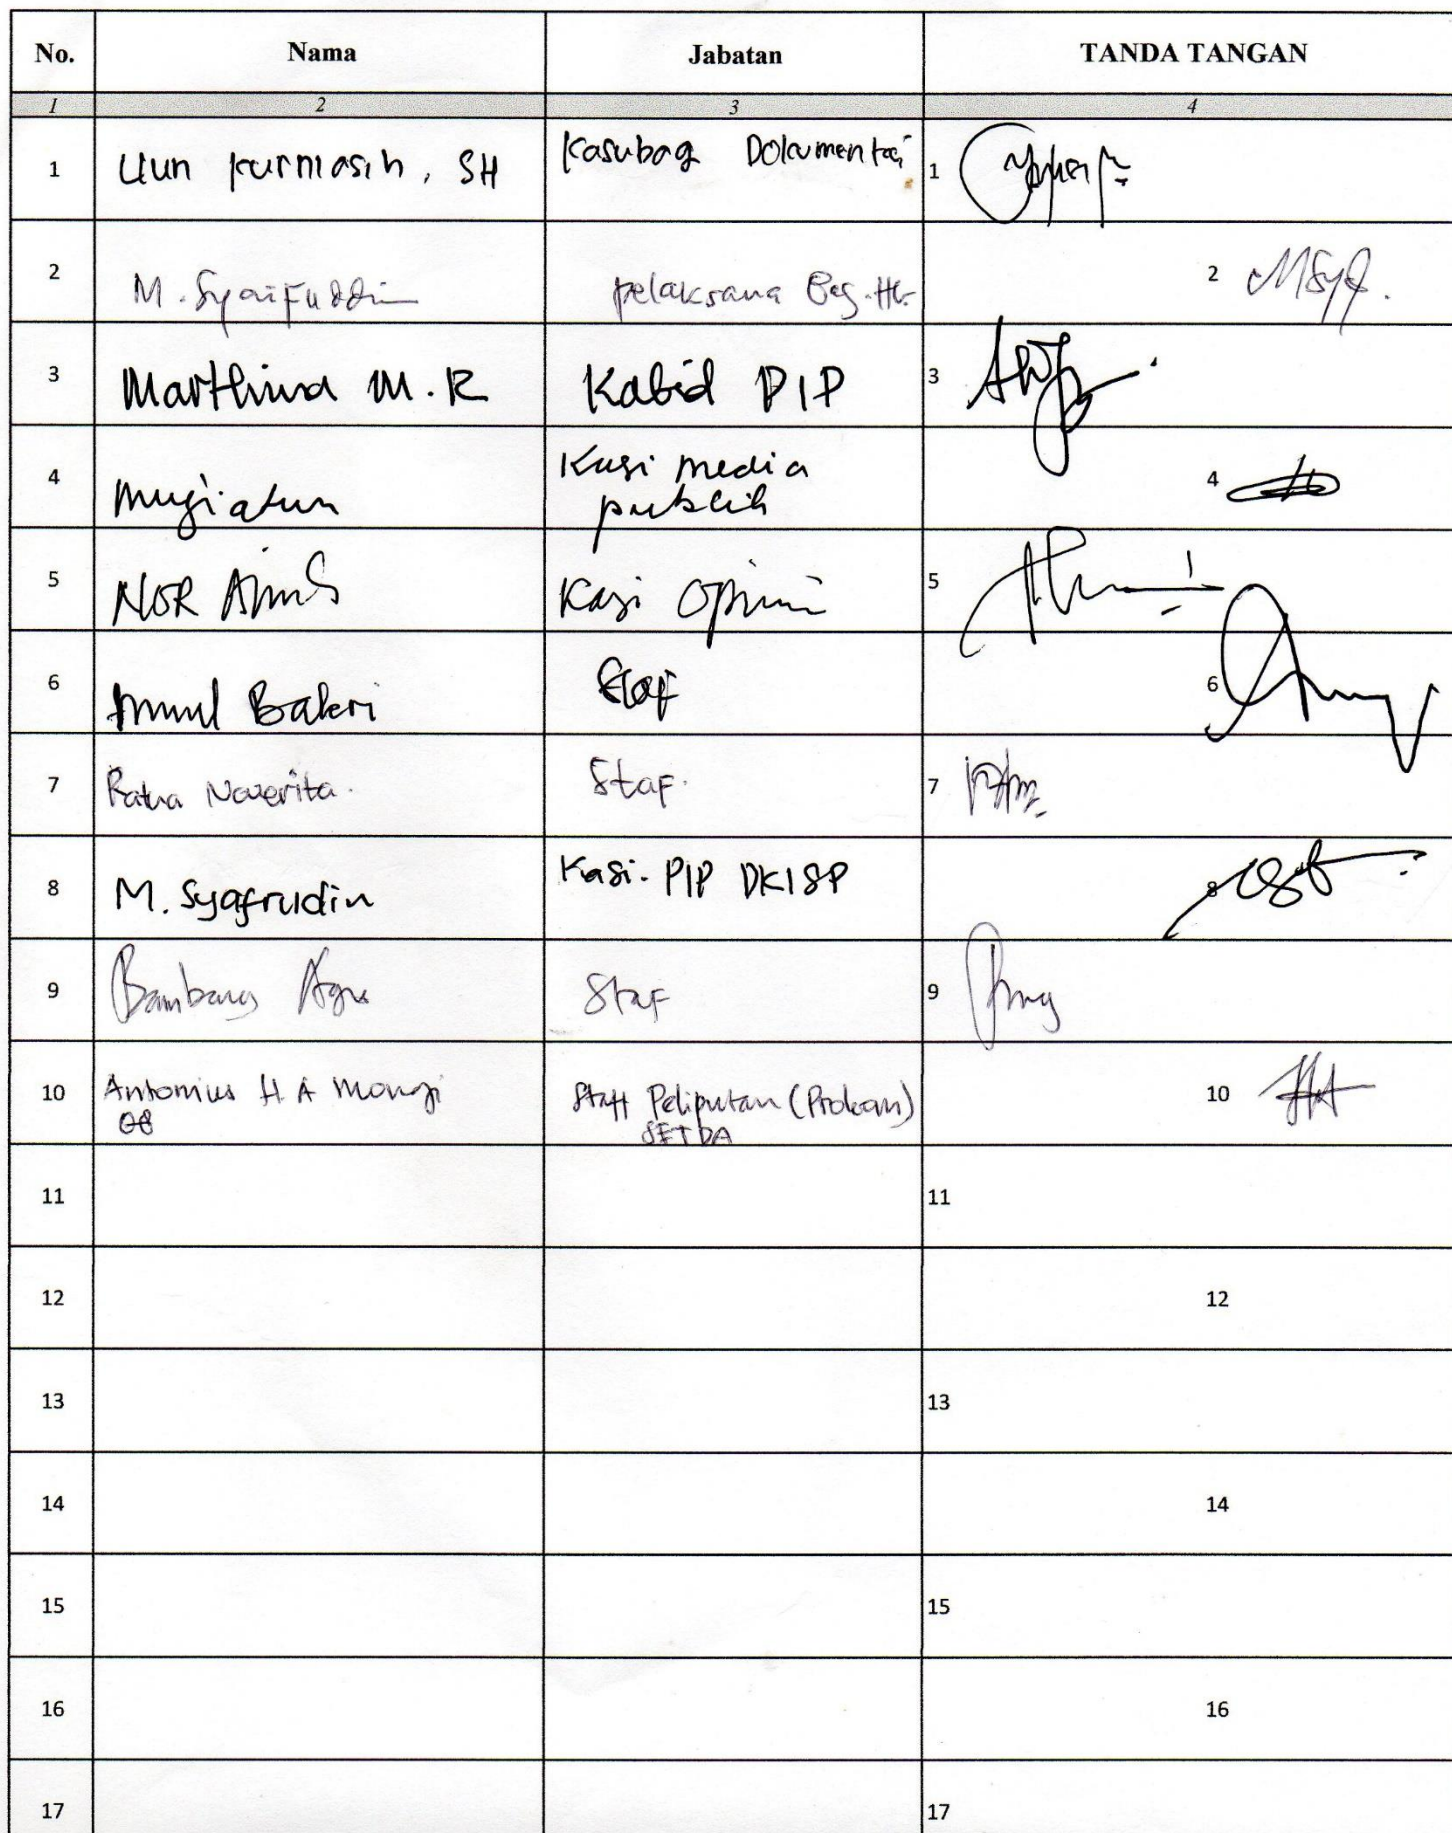 No. Nama Jabatan TANDA TANGAN
1 2 3 4
1 Uun Kurniasih, SH Kasubag Dokumentasi 1
2 M. Syaifuddin pelaksana Bag. 2
3 Marthina M.R Kabid PIP 3
4 Mugiatun Kasi media 4
publik
5 NOR Kasi Opini 5
6 Bakri Staf 6
7 Ratna Noverita. Staf. 7
8 M. Syafrudin Kasi. PIP DKISP 8
9 Bambang Agus Staf 9
10 Antonius H A Mongi Staff Peliputan (Prokom) 10
SETDA
11 11
12 12
13 13
14 14
15 15
16 16
17 17